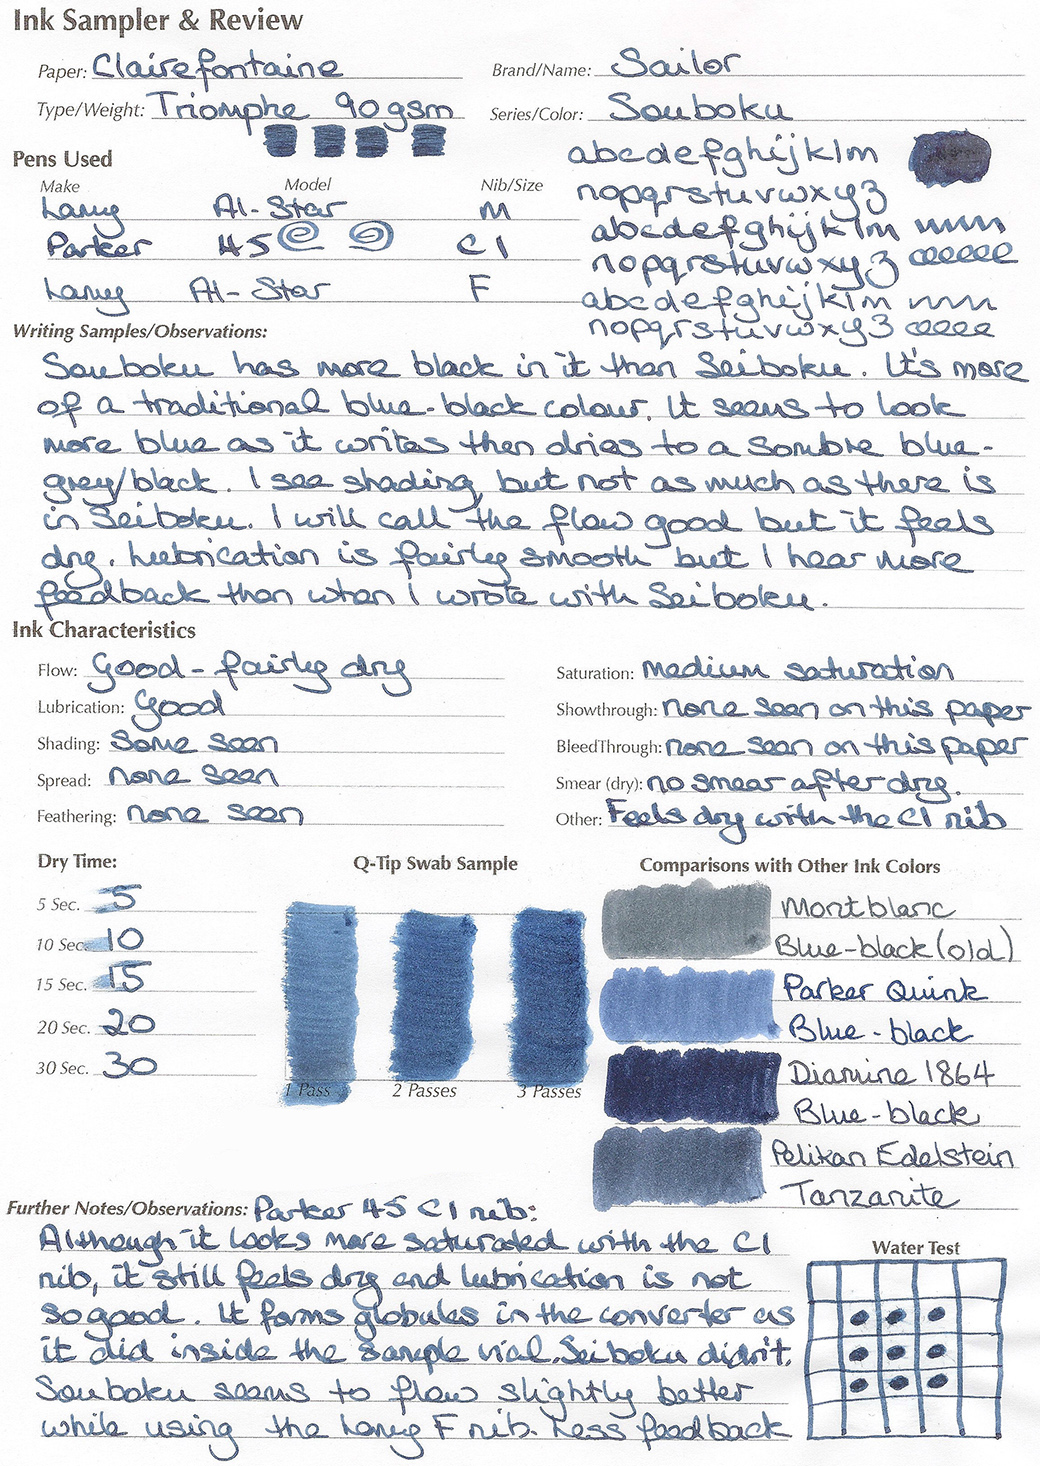 Ink Sampler & Review
Paper: Clairefontaine
Brand/Name: Sailor
Type/Weight: Triomphe 90gsm
Series/Color: Souboku
Pens Used
Make Model Nib/Size
Lamy Al-Star M
Parker 45 CI
Lamy Al-Star F
abcdefghijklm
nopqrstuvwxyz
abcdefghijklm
nopqrstuvwxyz
abcdefghijklm
nopqrstuvwxyz
Writing Samples/Observations:
Souboku has more black in it than Seiboku. It's more
of a traditional blue-black colour. It seems to look
more blue as it writes then dries to a sombre blue-
grey/black. I see shading, but not as much as there is
in Seiboku. I will call the flow good but it feels
dry. Lubrication is fairly smooth but I hear more
feedback than when I wrote with Seiboku.
Ink Characteristics
Flow: Good - fairly dry
Lubrication: Good
Shading: Some seen
Spread: none seen
Feathering: none seen
Saturation: medium saturation
Showthrough: none seen on this paper
BleedThrough: none seen on this paper
Smear (dry): no smear after dry.
Other: Feels dry with the CI nib
Dry Time:
5 Sec. 5
10 Sec. 10
15 Sec. 15
20 Sec. 20
30 Sec. 30
Q-Tip Swab Sample
1 Pass 2 Passes 3 Passes
Comparisons with Other Ink Colors
Montblanc
Blue-black (old)
Parker Quink
Blue-black
Diamine 1864
Blue-black
Pelikan Edelstein
Tanzanite
Further Notes/Observations: Parker 45 CI nib:
Although it looks more saturated with the CI
nib, it still feels dry and lubrication is not
so good. It forms globules in the converter as
it did inside the sample vial. Seiboku didn't.
Souboku seems to flow slightly better
while using the Lamy F nib. Less feedback
Water Test